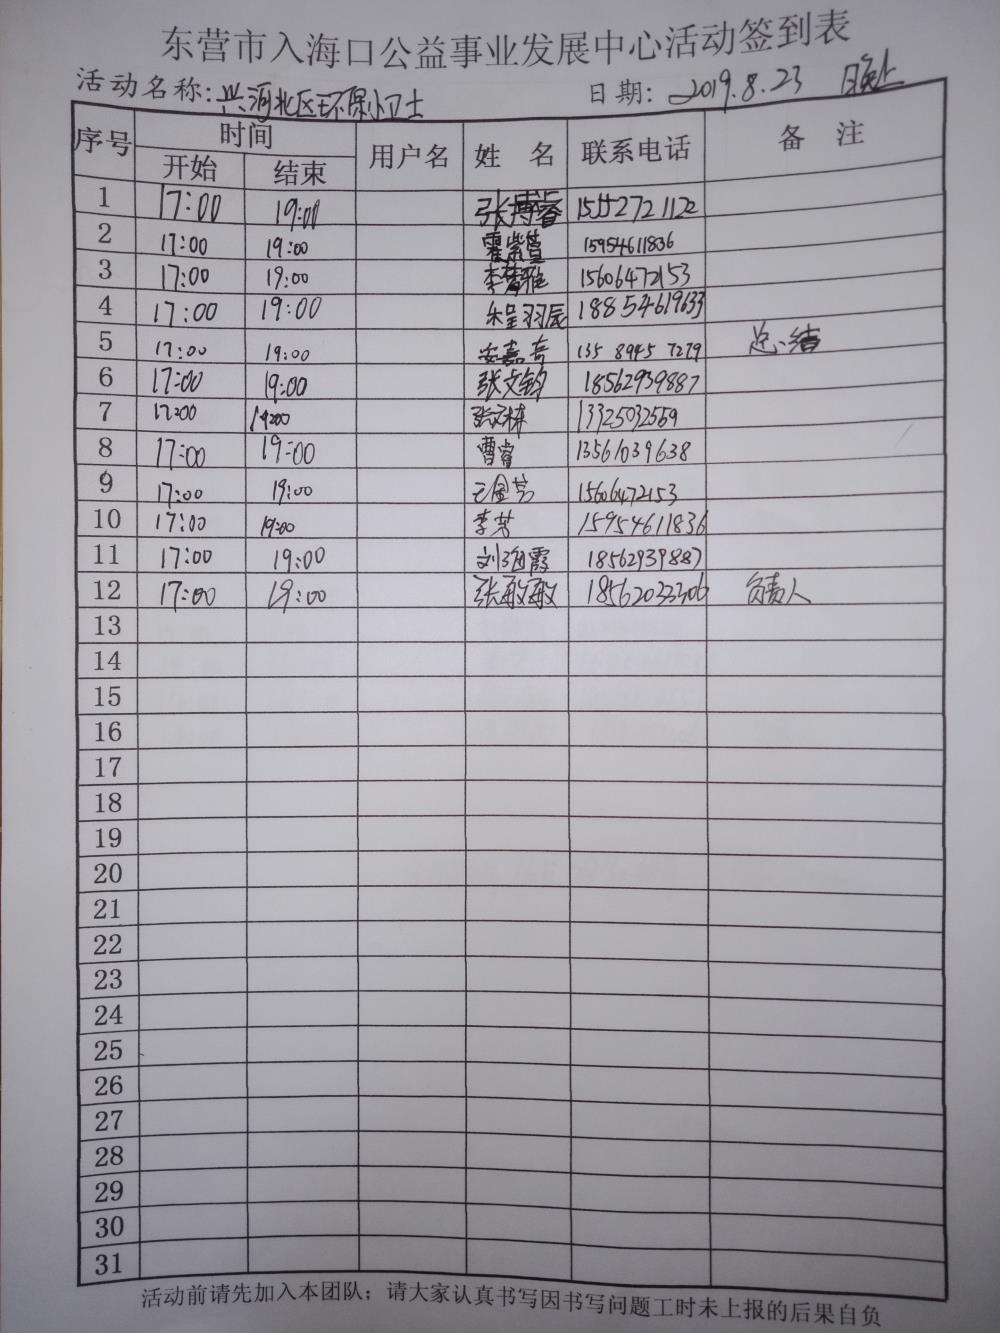 东营市入海口公益事业发展中心活动签到表
活动名称:兴河北区环保小卫士 日期: 2019.8.23 晚上
序号 时间 用户名 姓 名 联系电话 备 注
开始 结束
1 17:00 19:00 张博睿 15552721122
2 17:00 19:00 霍紫萱 15954611836
3 17:00 19:00 李梦雅 15606472153
4 17:00 19:00 朱呈羽辰 18854619633
5 17:00 19:00 安嘉奇 135 8945 7279 总结
6 17:00 19:00 张文钧 18562939887
7 17:00 19:00 张栋 13325032569
8 17:00 19:00 曹睿 13561039638
9 17:00 19:00 王金芳 15606472153
10 17:00 19:00 李芳 15954611836
11 17:00 19:00 刘海霞 18562939887
12 17:00 19:00 张敏敏 18562033306 负责人
13
14
15
16
17
18
19
20
21
22
23
24
25
26
27
28
29
30
31
活动前请先加入本团队；请大家认真书写因书写问题工时未上报的后果自负